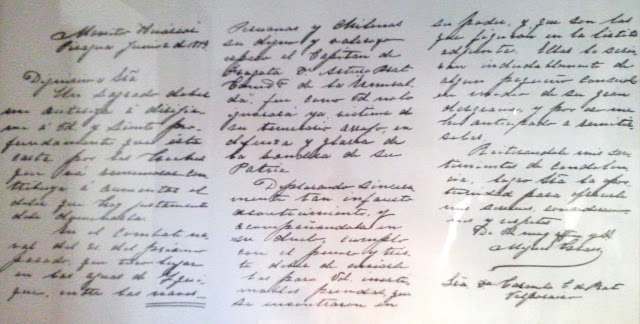 Monitor Huáscar
Pisagua Junio 2 de 1879
Dignísima Sra
Un sagrado deber
me autoriza á dirigir-
me á Ud y siento pro-
fundamente que esta
carta por las luchas
que vá á rememorar con-
tribuya á aumentar el
dolor que hoy justamente
debe dominarla.
En el combate na-
val del 21 del próximo
pasado, que tuvo lugar
en las aguas de Iqui-
que, entre las naves
Peruanas y Chilenas
su digno y valeroso
esposo el Capitán de
Fragata Dn Arturo Prat
Comdte de la Esmeral-
da, fué, como Ud no lo
ignorará ya, víctima de
su temerario arrojo, en
defensa y gloria de
la bandera de su
Patria
Deplorando sincera-
mente tan infausto
acontecimiento, y
acompañándola en
su duelo, cumplo
con el penoso y tris-
te deber de enviarle
las para Ud. inesti-
mables prendas, que
se encontraron en
su poder, y que son las
que figuran en la lista
adjunta. Ellas le servi-
rán indudablemente de
algun pequeño consuelo
en medio de su gran
desgracia, y por eso me
he anticipado a remitir-
selas.
Reiterandole mis sen-
timientos de condolen-
cia, logro Sra la opor-
tunidad para ofrecerle
mis servicios, consideracio-
nes y respetos
Miguel Grau
Sra Da Carmela C. de Prat
Valparaiso